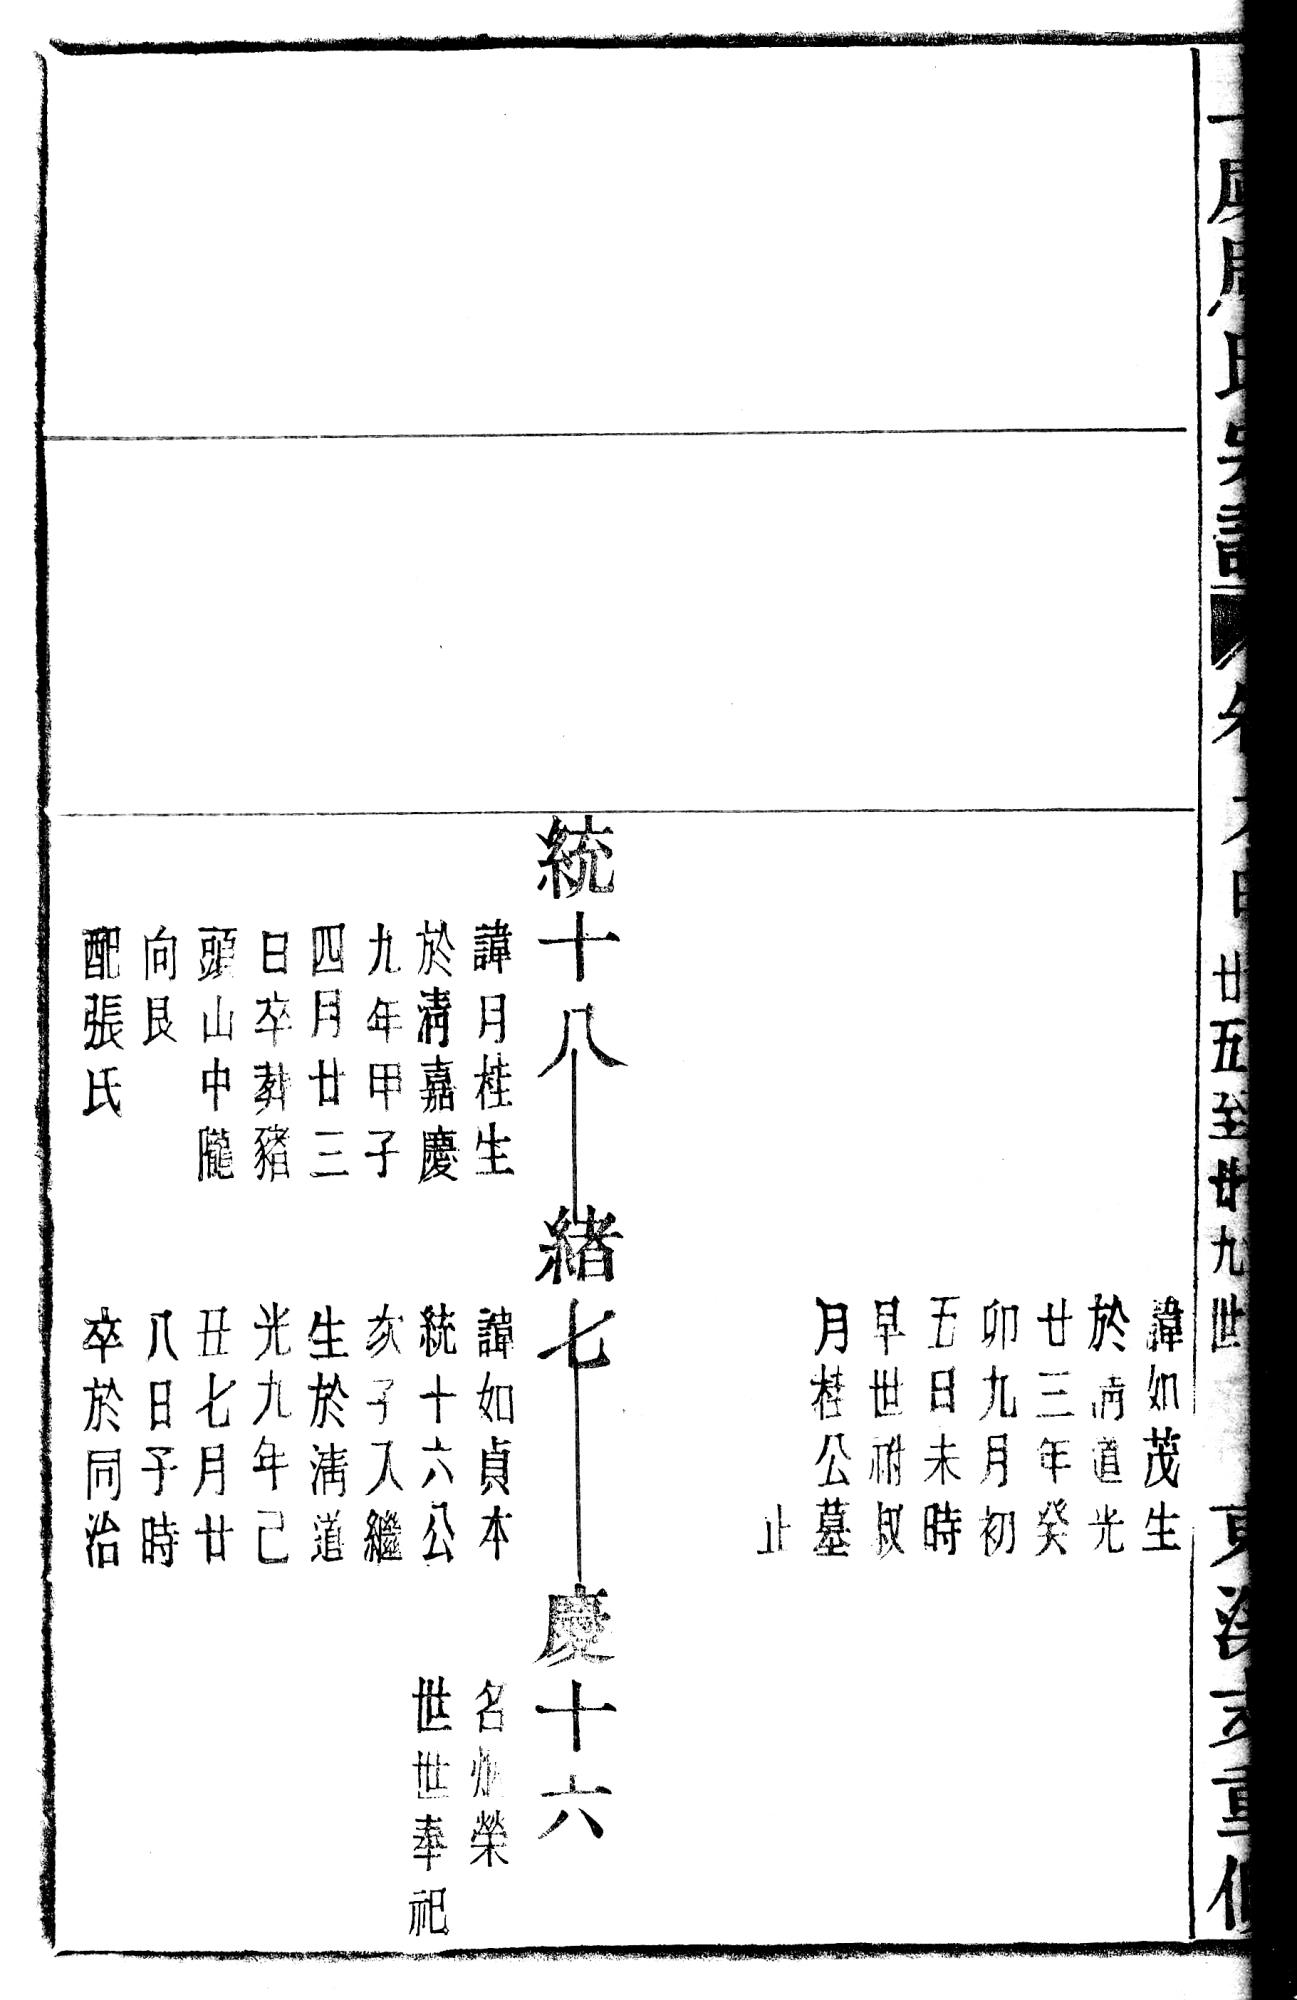 廿五至廿九世
重修
諱如茂生
於清道光
廿三年癸
卯九月初
五日未時
早世祔叔
月桂公墓
止
統十八
緒七
慶十六
諱月桂生
於清嘉慶
九年甲子
四月廿三
日卒葬豬
頭山中隴
向艮
配張氏
諱如貞本
統十六公
亥子入繼
生於清道
光九年己
丑七月廿
八日予時
卒於同治
名 榮
世世奉祀